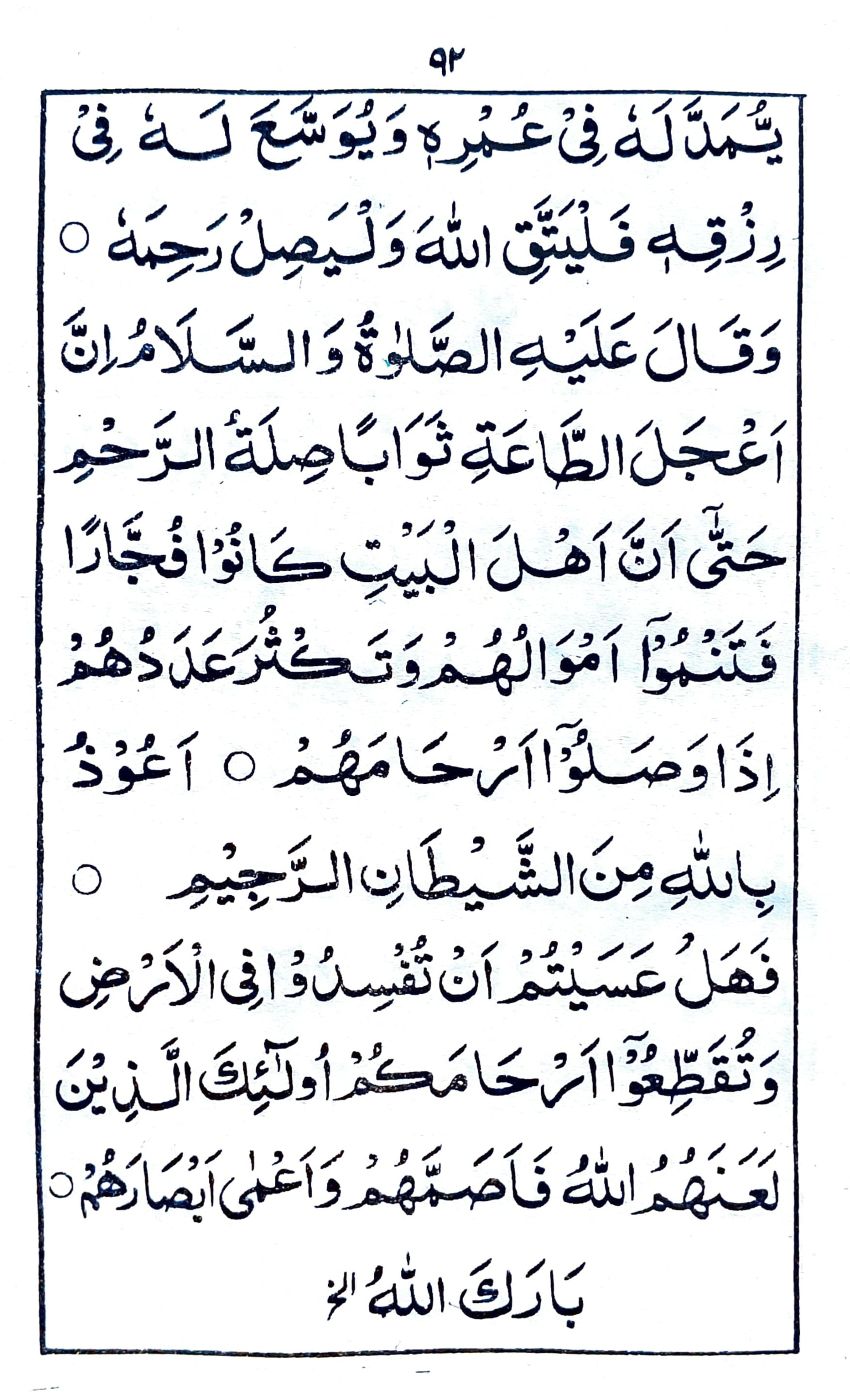 ٩٢
يُّمَدَّ لَهٗ فِىْ عُمْرِهٖ وَيُوَسَّعَ لَهٗ فِىْ
رِزْقِهٖ فَلْيَتَّقِ اللهَ وَلْيَصِلْ رَحِمَهٗ ○
وَقَالَ عَلَيْهِ الصَّلٰوةُ وَالسَّلَامُ اِنَّ
اَعْجَلَ الطَّاعَةِ ثَوَابًا صِلَةُ الرَّحْمِ
حَتّٰٓى اَنَّ اَهْلَ الْبَيْتِ كَانُوْا فُجَّارًا
فَتَنْمُوْٓا اَمْوَالُهُمْ وَتَكْثُرَ عَدَدُهُمْ
اِذَا وَصَلُوْٓا اَرْحَامَهُمْ ○ اَعُوْذُ
بِاللهِ مِنَ الشَّيْطَانِ الرَّجِيْمِ ○
فَهَلْ عَسَيْتُمْ اَنْ تُفْسِدُوْا فِى الْاَرْضِ
وَتُقَطِّعُوْٓا اَرْحَامَكُمْ اُولٰٓئِكَ الَّذِيْنَ
لَعَنَهُمُ اللهُ فَاَصَمَّهُمْ وَاَعْمٰى اَبْصَارَهُمْ ○
بَارَكَ اللهُ الخ